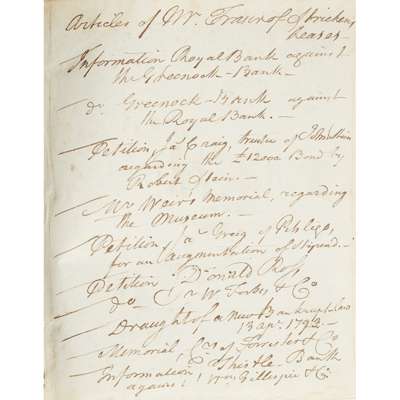 Articles of Mr. Fraser of Strichens
leases —
Information Royal Bank against
the Greenock - Bank —
do. Greenock - Bank against
the Royal Bank. —
Petition Ja Craig, trustee of
regarding the £1200 Bond by
Robert Stein. —
Mr Weir's Memorial, regarding
the Museum. —
Petition Ja Greig of Pitsligo,
for an augmentation of Stipend. —
Petition Donald Ross,
do — Sr Wm Forbes & Co
Draught of a New Bankrupt Law
13 apr. 1793. —
Memorial, Crs of Forrester & Co
Information Thistle Bank
against Wm Gillespie & Co.